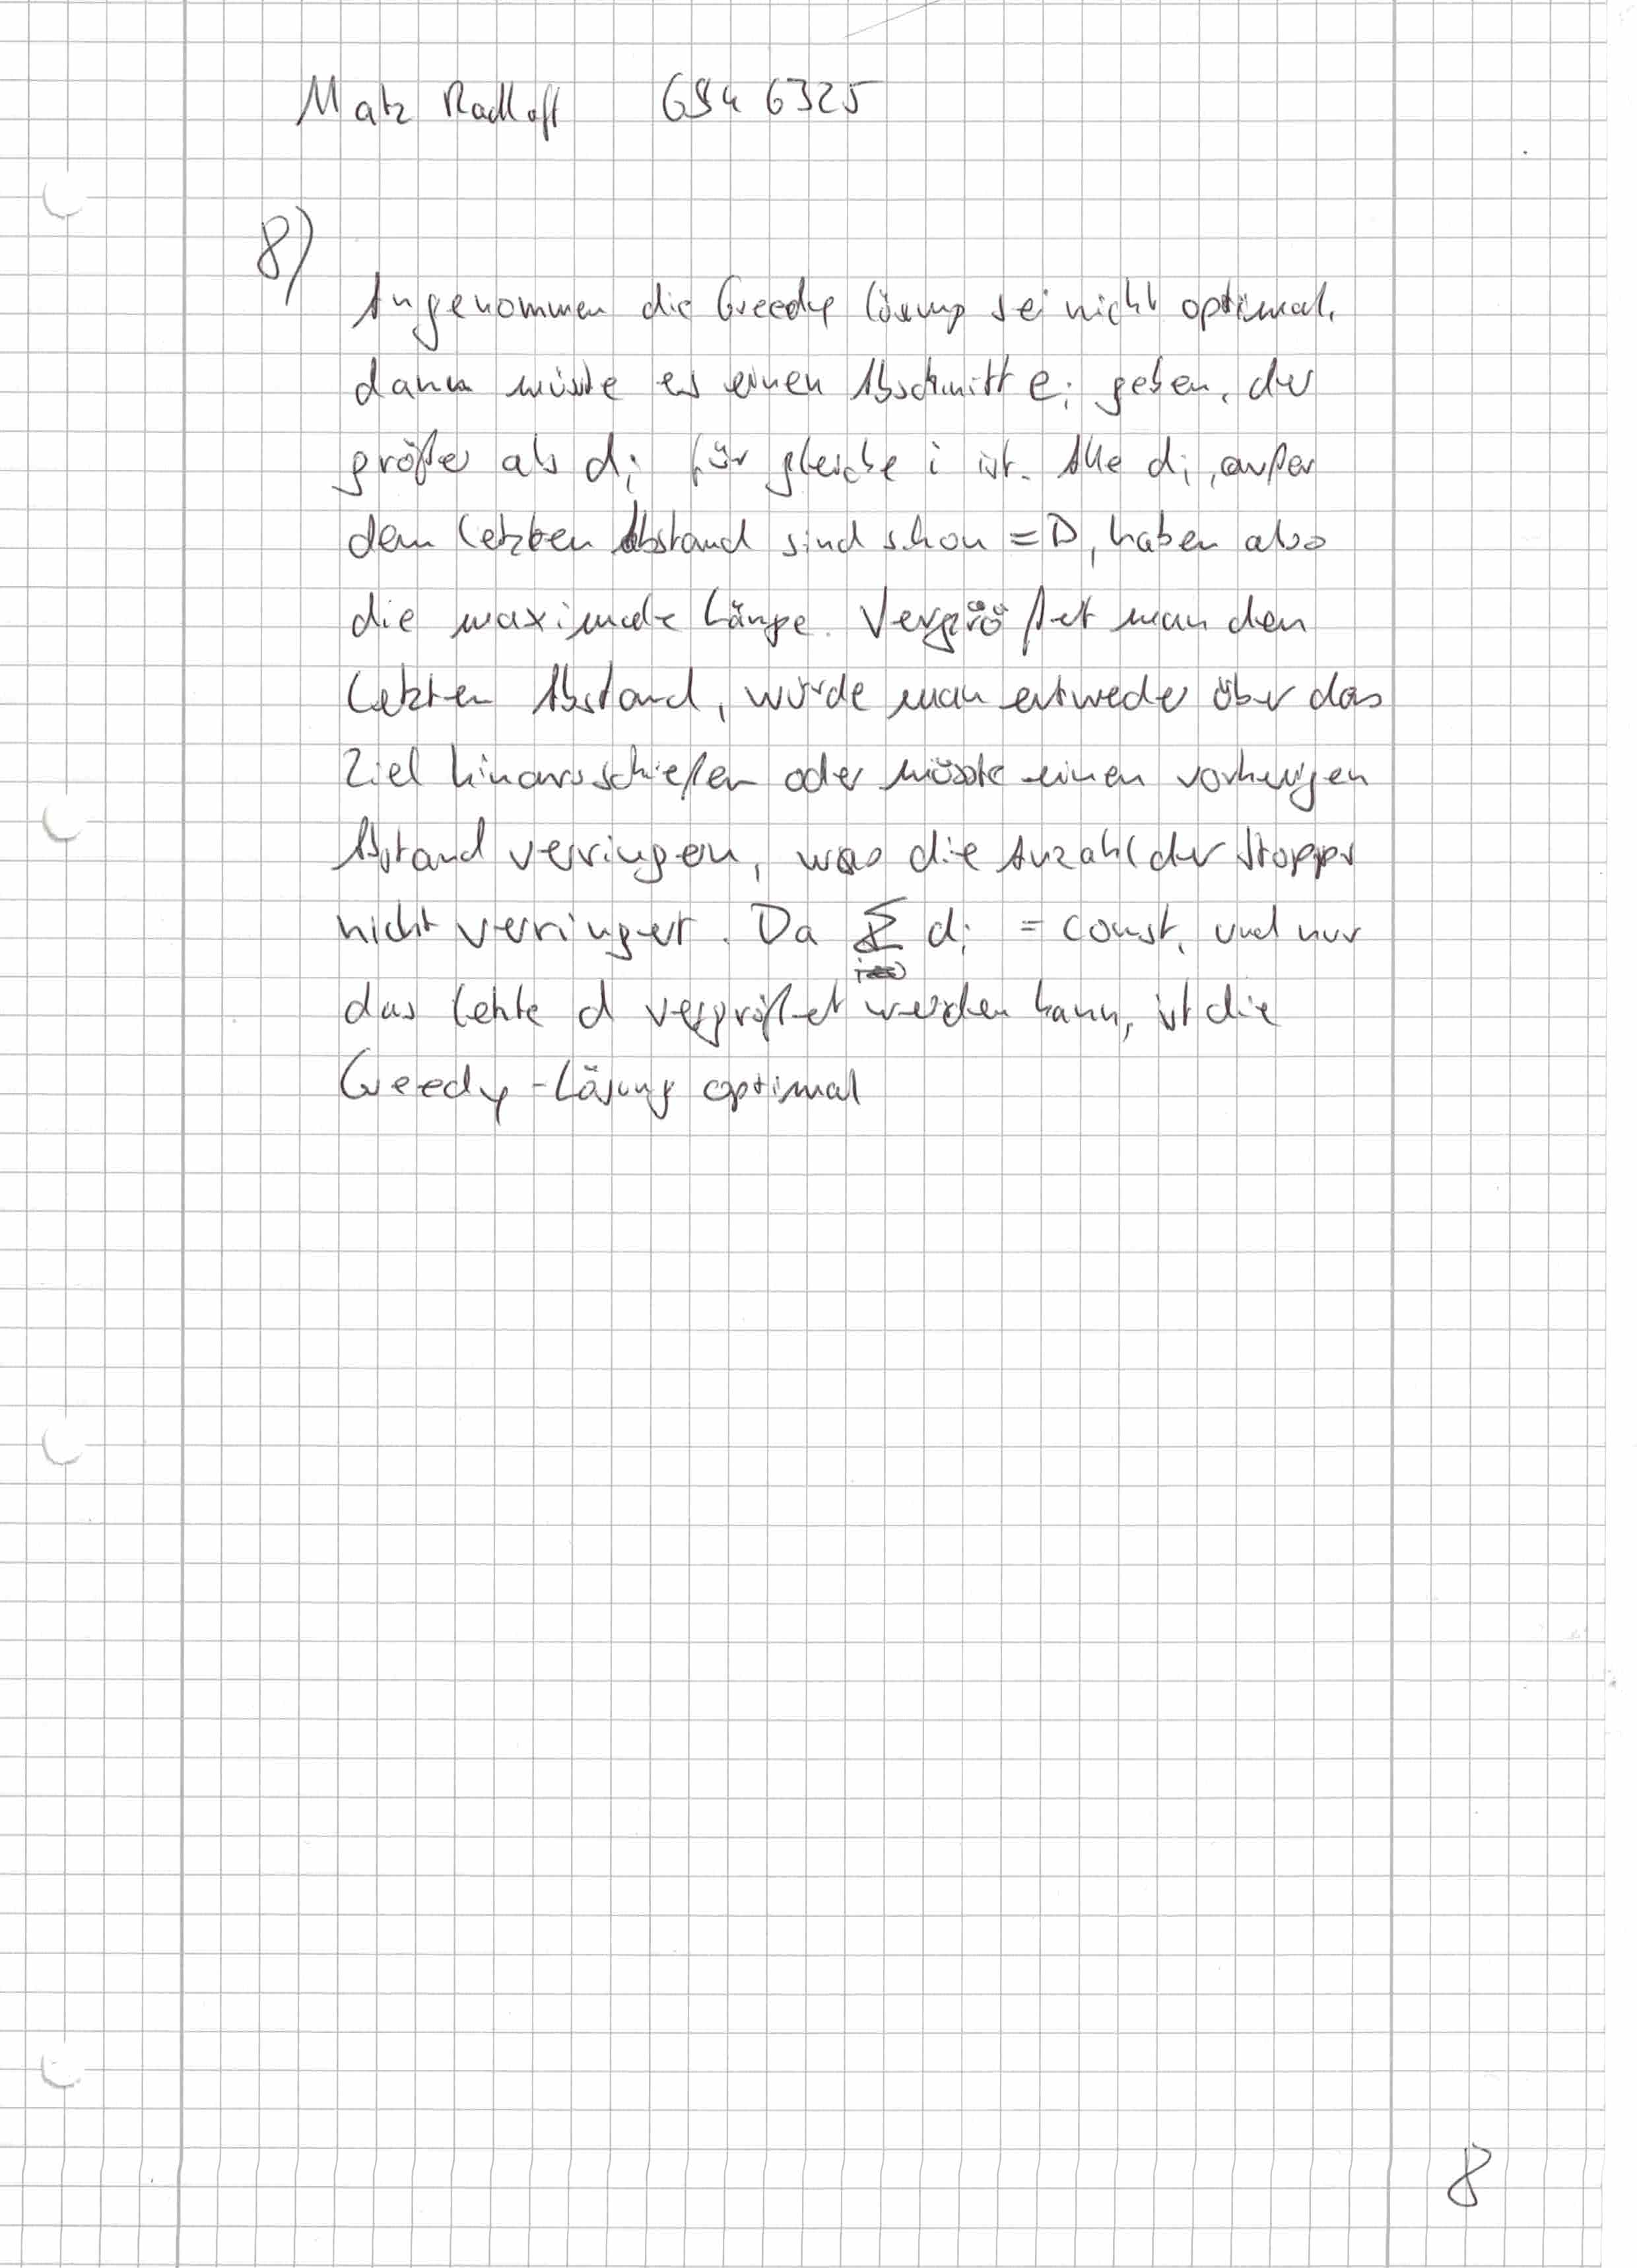 Matz Radloff 6946325
8)
Angenommen die Greedy Lösung sei nicht optimal,
dann müsste es einen Abschnitt e_i geben, der
größer als d_i für gleiche i ist. Alle d_i, außer
dem letzten Abstand sind schon = D, haben also
die maximale Länge. Vergrößert man den
letzten Abstand, würde man entweder über das
Ziel hinausschießen oder müsste einen vorherigen
Abstand verringern, was die Anzahl der Stopps
nicht verringert. Da Σ d_i = const. und nur
das letzte d vergrößert werden kann, ist die
Greedy-Lösung optimal
8